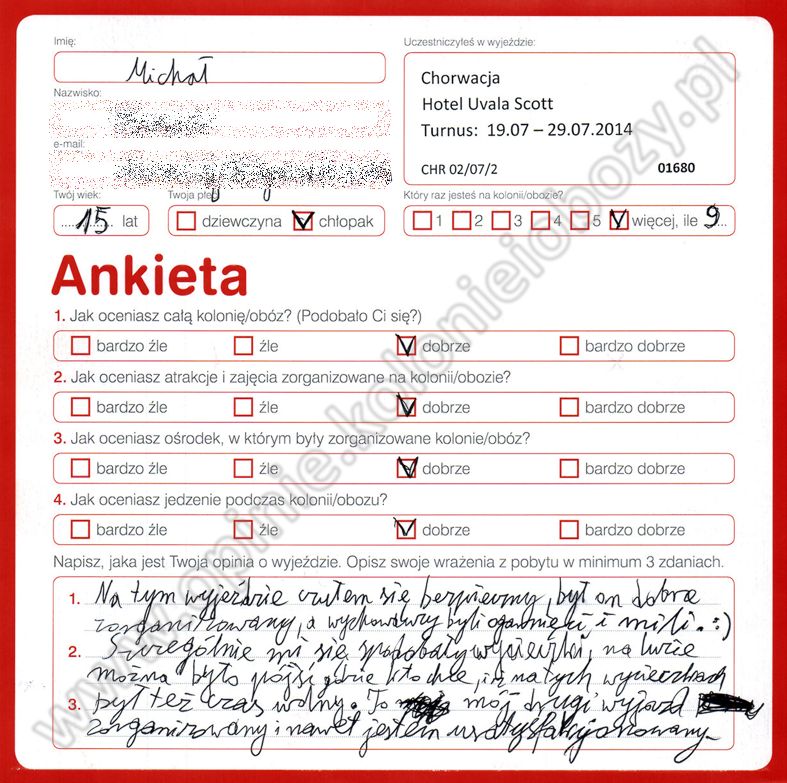 Imię:
Uczestniczyłeś w wyjeździe:
Michał
Chorwacja
Hotel Uvala Scott
Turnus: 19.07 – 29.07.2014
CHR 02/07/2 01680
Nazwisko:
e-mail:
Twój wiek: Twoja płeć Który raz jesteś na kolonii/obozie?
15 lat dziewczyna chłopak 1 2 3 4 5 więcej, ile 9
Ankieta
1. Jak oceniasz całą kolonię/obóz? (Podobało Ci się?)
bardzo źle źle dobrze bardzo dobrze
2. Jak oceniasz atrakcje i zajęcia zorganizowane na kolonii/obozie?
bardzo źle źle dobrze bardzo dobrze
3. Jak oceniasz ośrodek, w którym były zorganizowane kolonie/obóz?
bardzo źle źle dobrze bardzo dobrze
4. Jak oceniasz jedzenie podczas kolonii/obozu?
bardzo źle źle dobrze bardzo dobrze
Napisz, jaka jest Twoja opinia o wyjeździe. Opisz swoje wrażenia z pobytu w minimum 3 zdaniach.
1. Na tym wyjeździe czułem się bezpieczny, był on dobrze
zorganizowany, a wychowawcy byli ogarnięci i mili. :)
2. Szczególnie mi się spodobały wycieczki, na
można było pójść gdzie kto chce, i na tych wycieczkach
3. był też czas wolny. To mój drugi wyjazd
zorganizowany i nawet jestem usatysfakcjonowany
www.opinie.kolonieiobozy.pl